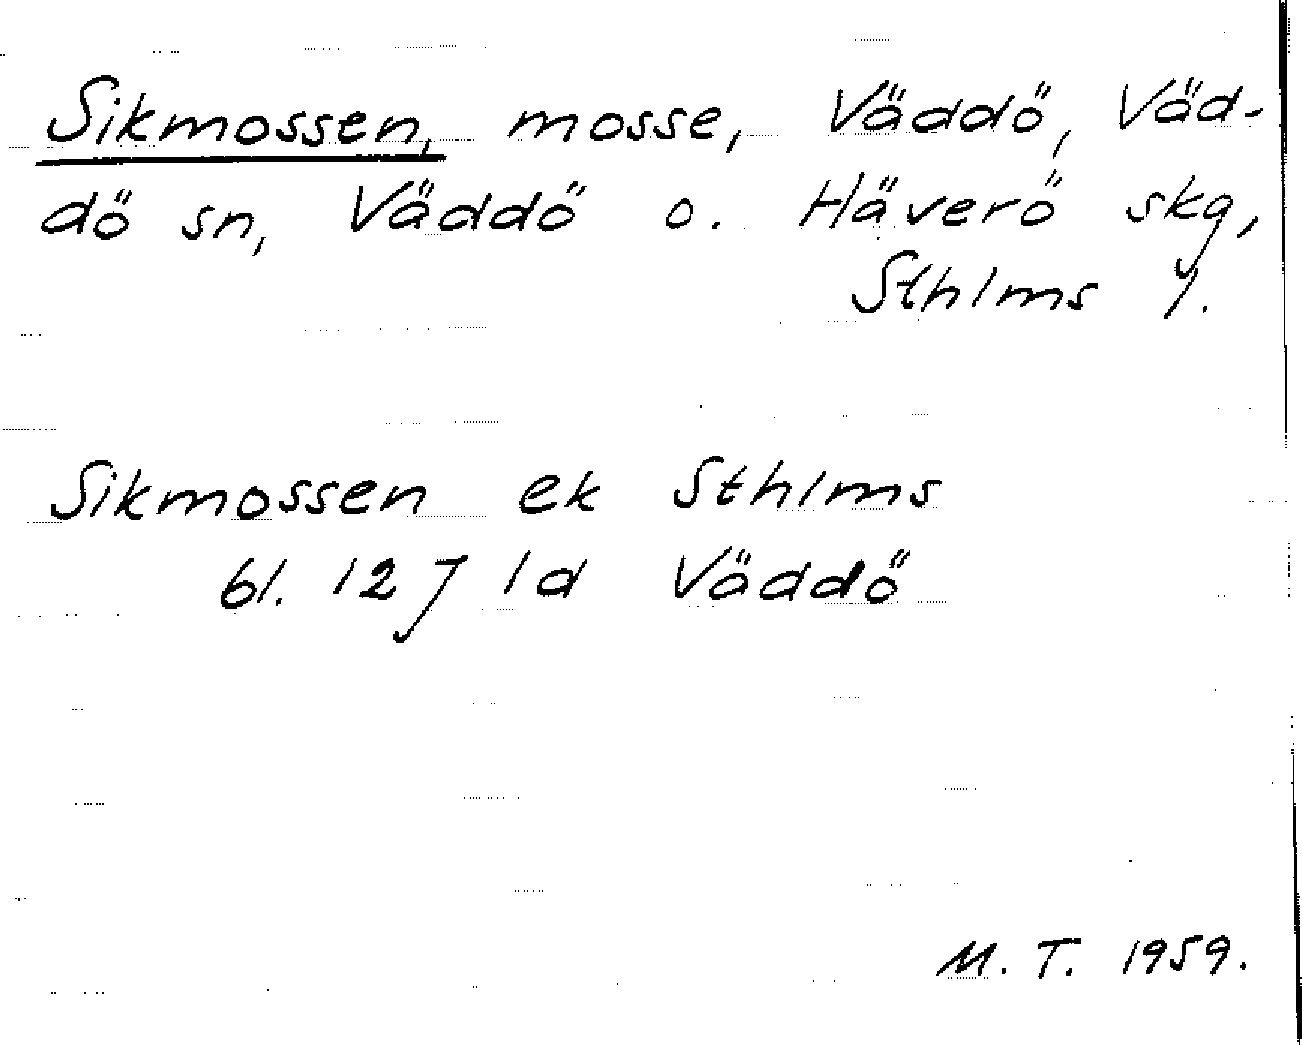 Sikmossen, mosse, Väddö, Väd-
dö sn, Väddö o. Häverö skg,
Sthlms l.
Sikmossen ek Sthlms
bl. 12 J 1d Väddö
M. T. 1959.